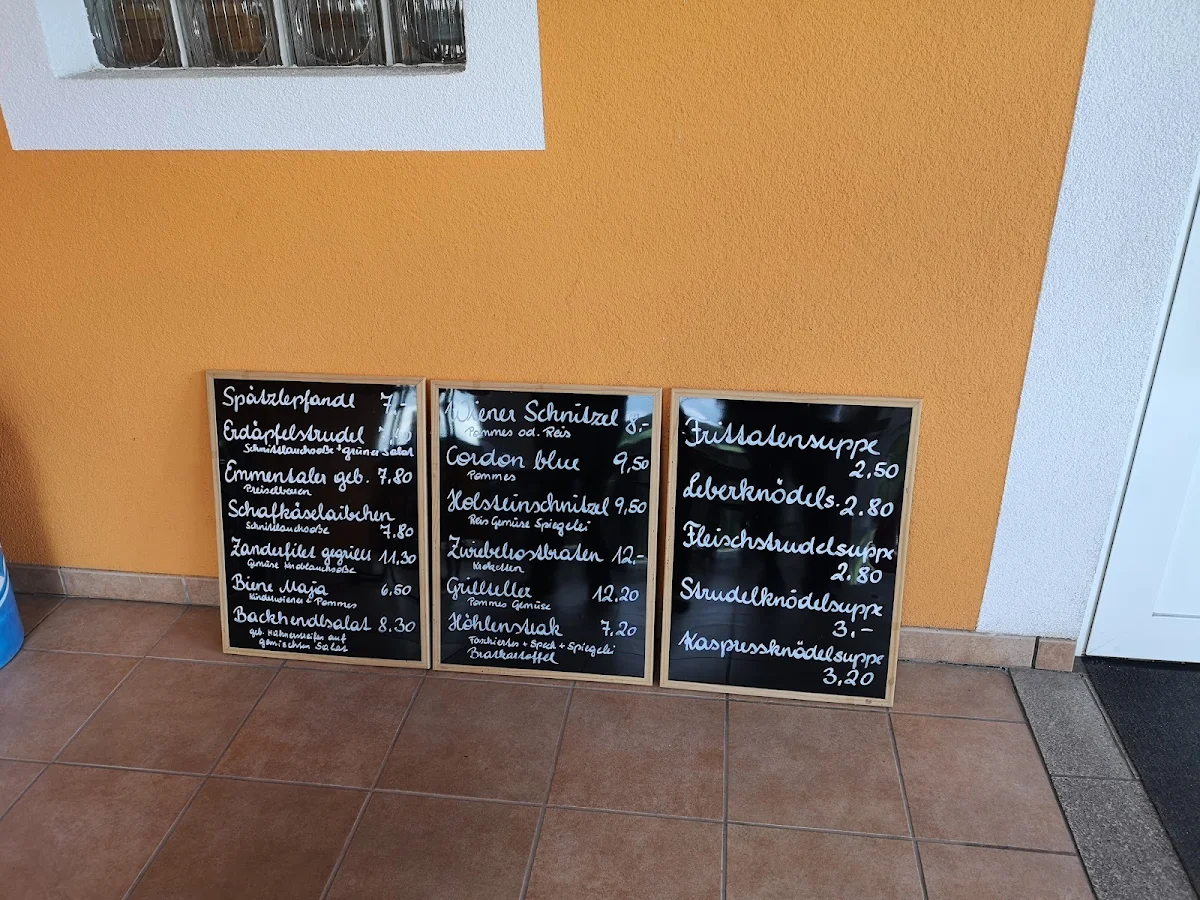 Spätzlepfandl 7,-
Erdäpfelstrudel
Schnittlauchsoße + grüner Salat
Emmentaler geb. 7.80
Preiselbeeren
Schafkäselaibchen
Schnittlauchsoße 7.80
Zanderfilet gegrillt 11,30
Gemüse Knoblauchsoße
Biene Maja 6.50
Kinderwiener + Pommes
Backhendlsalat 8.30
geb. Hühnerstreifen auf
gemischten Salat
Wiener Schnitzel 8,-
Pommes od. Reis
Cordon blue 9,50
Pommes
Holsteinschnitzel 9,50
Reis Gemüse Spiegelei
Zwiebelrostbraten 12,-
Kroketten
Grillteller 12.20
Pommes Gemüse
Höhlensteak 7.20
Faschiertes + Speck + Spiegelei
Bratkartoffel
Frittatensuppe
2,50
Leberknödels. 2.80
Fleischstrudelsuppe
2.80
Strudelknödelsuppe
3,-
Kaspressknödelsuppe
3,20